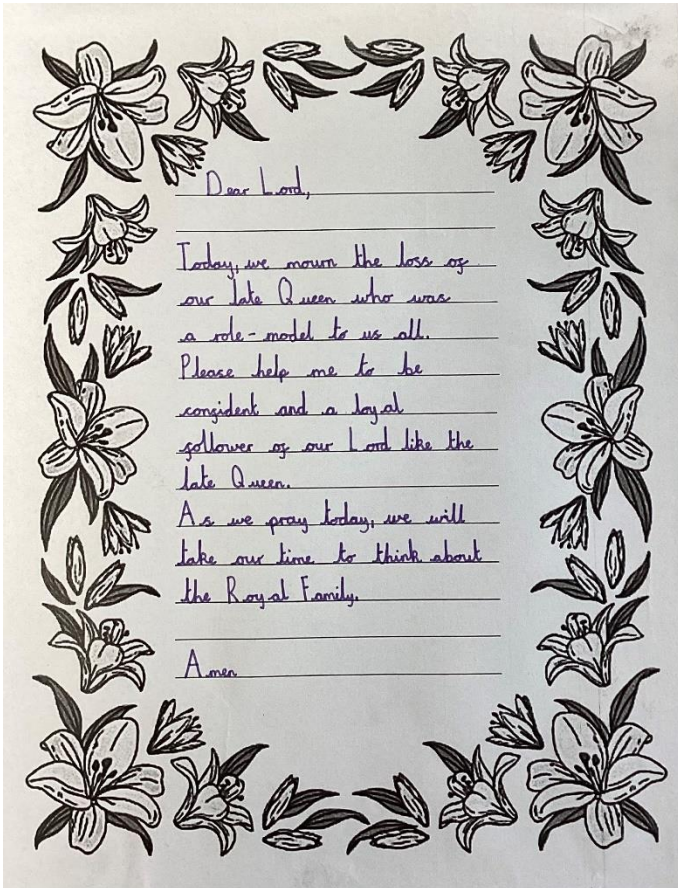 Dear Lord,
Today, we mourn the loss of
our late Queen who was
a role-model to us all.
Please help me to be
confident and a loyal
follower of our Lord like the
late Queen.
As we pray today, we will
take our time to think about
the Royal Family.
Amen